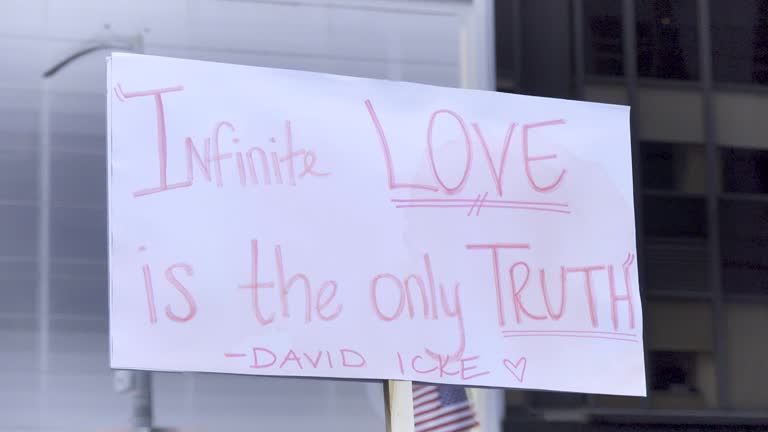 "Infinite LOVE
is the only TRUTH"
-DAVID ICKE ♡